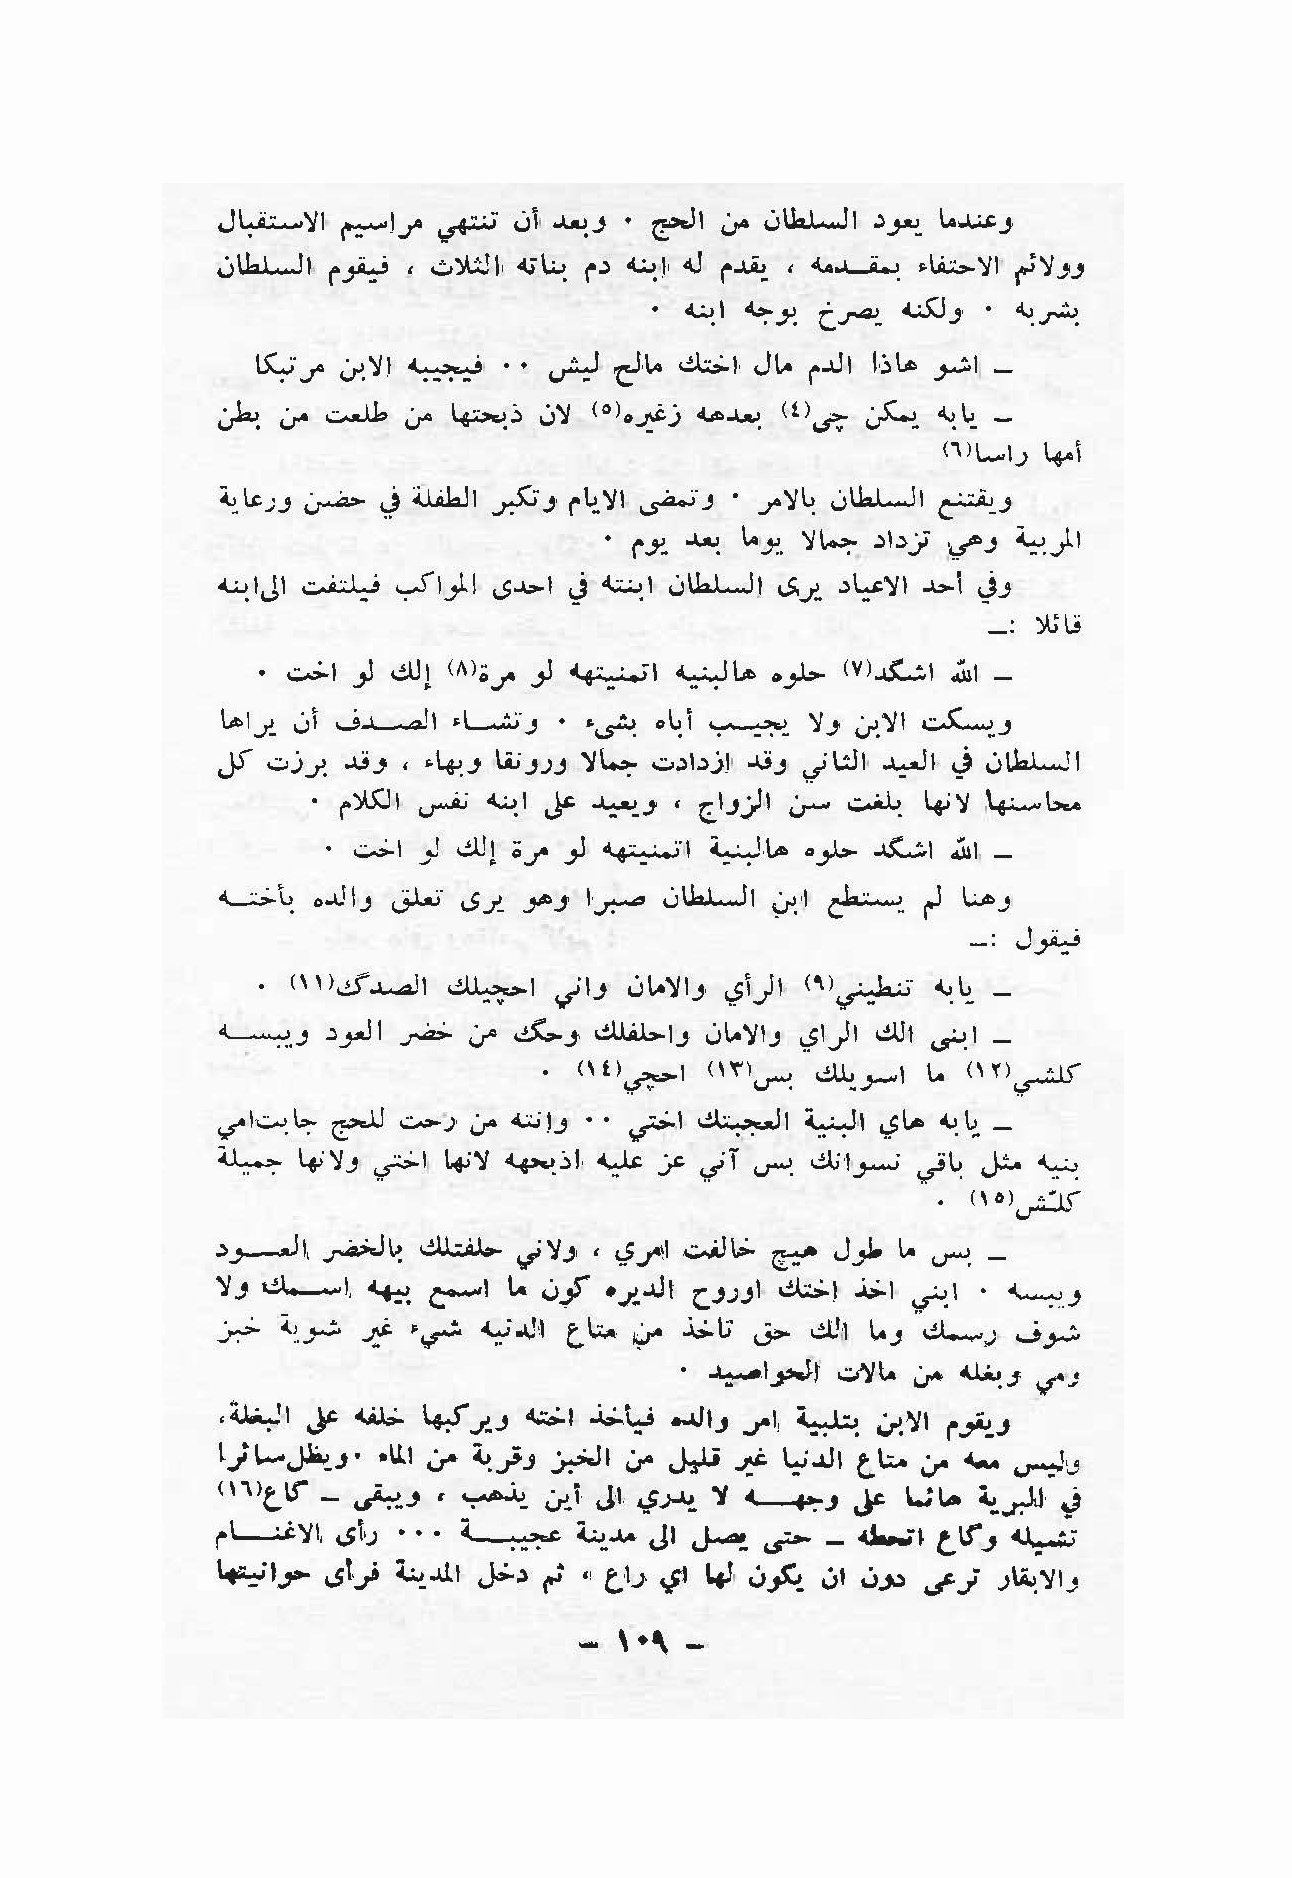 وعندما يعود السلطان من الحج · وبعد أن تنتهي مراسيم الاستقبال
وولائم الاحتفاء بمقدمه ، يقدم له ابنه دم بناته الثلاث ، فيقوم السلطان
بشربه · ولكنه يصرخ بوجه ابنه ·
ـ اشو هاذا الدم مال اختك مالح ليش ·· فيجيبه الابن مرتبكا
ـ يابه يمكن چي(٤) بعدهه زغيره(٥) لان ذبحتها من طلعت من بطن
أمها راسا(٦)
ويقتنع السلطان بالامر · وتمضى الايام وتكبر الطفلة في حضن ورعاية
المربية وهي تزداد جمالا يوما بعد يوم ·
وفي أحد الاعياد يرى السلطان ابنته في احدى المواكب فيلتفت الى ابنه
قائلا :ـ
ـ الله اشگد(٧) حلوه هالبنيه اتمنيتهه لو مرة(٨) إلك لو اخت ·
ويسكت الابن ولا يجيب أباه بشىء · وتشاء الصدف أن يراها
السلطان في العيد الثاني وقد ازدادت جمالا ورونقا وبهاء ، وقد برزت كل
محاسنها لانها بلغت سن الزواج ، ويعيد على ابنه نفس الكلام ·
ـ الله اشگد حلوه هالبنية اتمنيتهه لو مرة إلك لو اخت ·
وهنا لم يستطع ابن السلطان صبرا وهو يرى تعلق والده بأخته
فيقول :ـ
ـ يابه تنطيني(٩) الرأي والامان واني احچيلك الصدگ(١١) ·
ـ ابنى الك الراي والامان واحلفلك وحگ من خضر العود ويبسه
كلشي(١٢) ما اسويلك بس(١٣) احچي(١٤) ·
ـ يابه هاي البنية العجبتك اختي ·· وإنته من رحت للحج جابت امي
بنيه مثل باقي نسوانك بس آني عز عليه اذبحهه لانها اختي ولانها جميلة
كلّش(١٥) ·
ـ بس ما طول هيچ خالفت امري ، ولاني حلفتلك بالخضر العود
ويبسه · ابني اخذ اختك اوروح الديره كون ما اسمع بيهه اسمك ولا
شوف رسمك وما الك حق تاخذ من متاع الدنيه شيء غير شوية خبز
ومي وبغله من مالات الحواصيد ·
ويقوم الابن بتلبية امر والده فيأخذ اخته ويركبها خلفه على البغلة،
وليس معه من متاع الدنيا غير قليل من الخبز وقربة من الماء · ويظل سائرا
في البرية هائما على وجهه لا يدري الى أين يذهب ، ويبقى ـ گاع(١٦)
تشيله وگاع اتحطه ـ حتى يصل الى مدينة عجيبة ··· رأى الاغنام
والابقار ترعى دون ان يكون لها اي راع ، ثم دخل المدينة فرأى حوانيتها
ـ ١٠٩ ـ